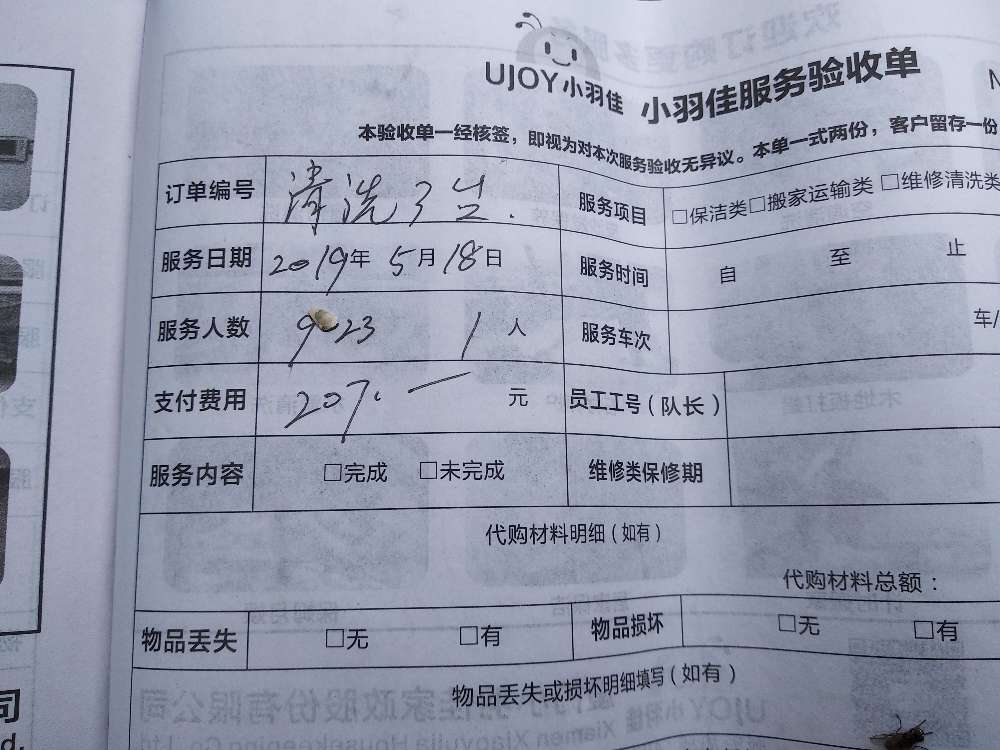 UJOY小羽佳 小羽佳服务验收单
本验收单一经核签，即视为对本次服务验收无异议。本单一式两份，客户留存一份
订单编号 清洗3台. 服务项目 □保洁类□搬家运输类□维修清洗类
服务日期 2019年 5月18日 服务时间 自 至 止
服务人数 9-23 1人 服务车次 车/
支付费用 207.一 元 员工工号（队长）
服务内容 □完成 □未完成 维修类保修期
代购材料明细（如有）
代购材料总额：
物品丢失 □无 □有 物品损坏 □无 □有
物品丢失或损坏明细填写（如有）
司
d.